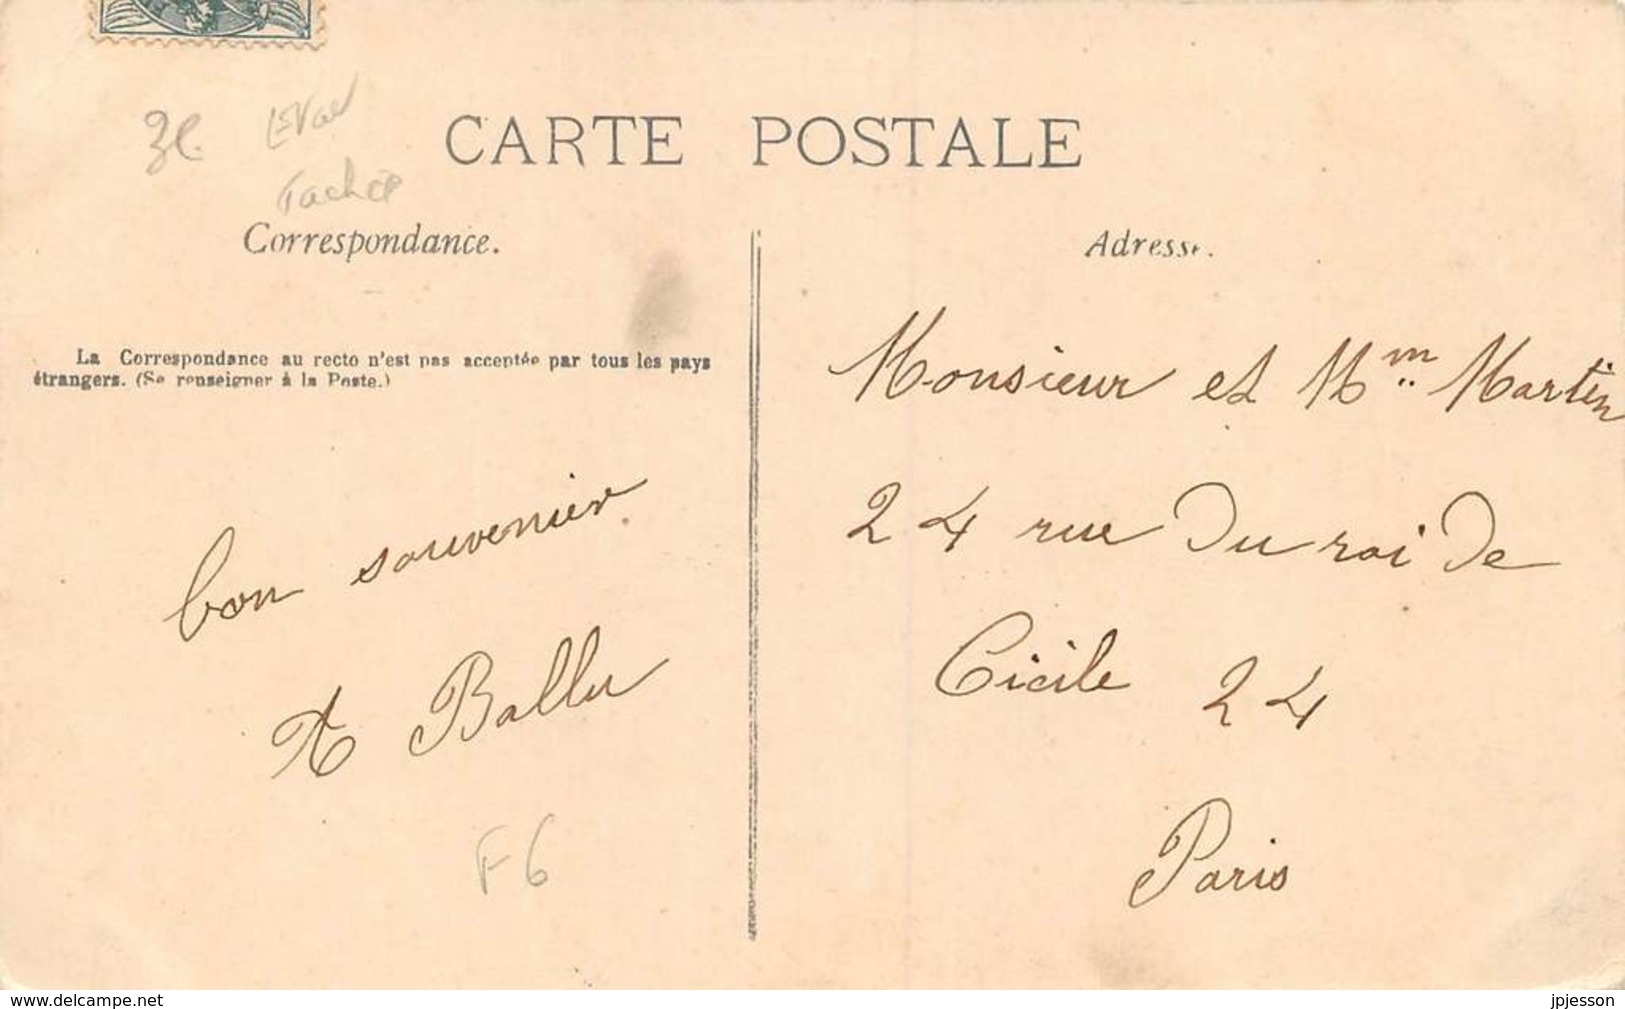 3€ Eval
Tachée
CARTE POSTALE
Correspondance.
Adresse.
La Correspondance au recto n'est pas acceptée par tous les pays
étrangers. (Se renseigner à la Poste.)
bon souvenier
A Ballu
F6
Monsieur et Mm Martin
24 rue Du roi De
Cicile 24
Paris
www.delcampe.net
jpjesson